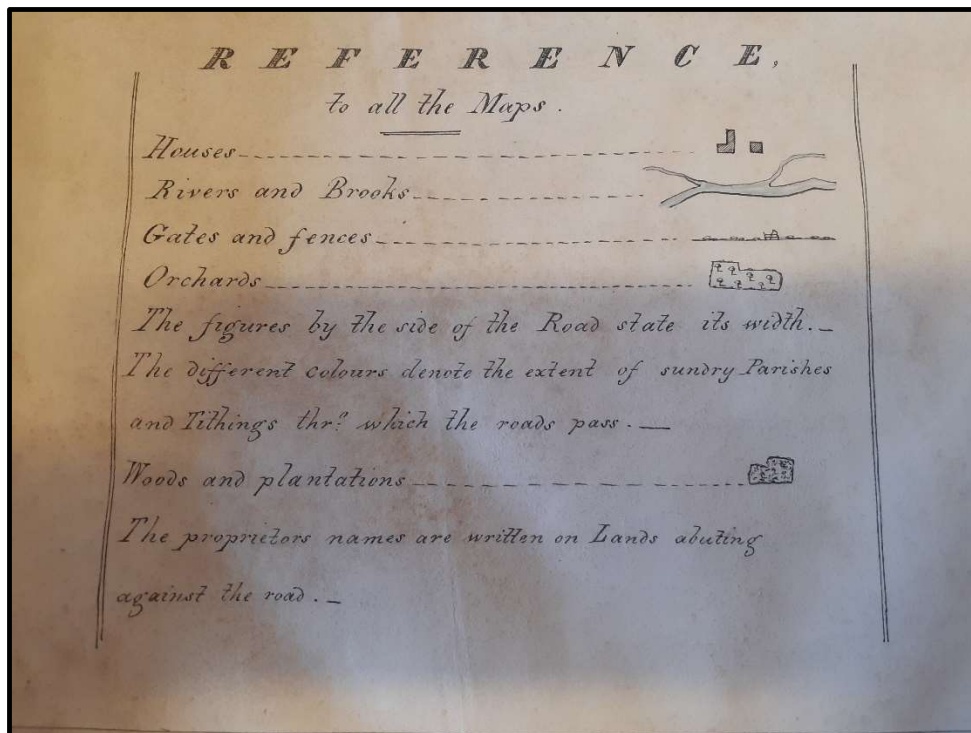 REFERENCE,
to all the Maps.
Houses
Rivers and Brooks
Gates and fences
Orchards
The figures by the side of the Road state its width._
The different colours denote the extent of sundry Parishes
and Tithings thro. which the roads pass._
Woods and plantations
The proprietors names are written on Lands abuting
against the road._